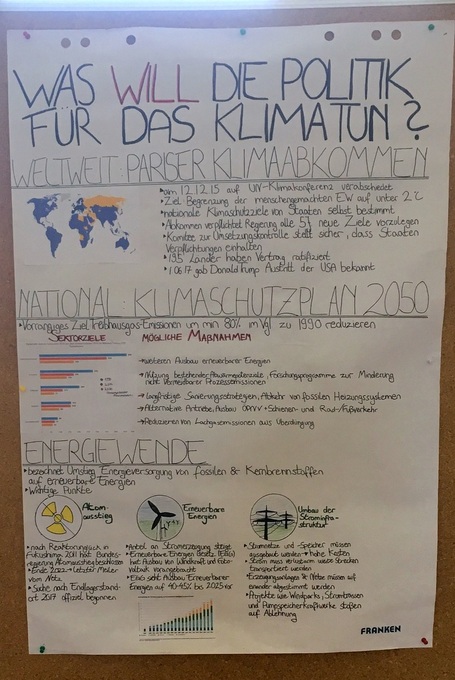 WAS WILL DIE POLITIK
FÜR DAS KLIMA TUN ?
WELTWEIT: PARISER KLIMAABKOMMEN
am 12.12.15 auf UN-Klimakonferenz verabschiedet
Ziel: Begrenzung der menschengemachten EW auf unter 2°C
nationale Klimaschutzziele von Staaten selbst bestimmt
Abkommen verpflichtet Regierung alle 5J neue Ziele vorzulegen
Komitee zur Umsetzungskontrolle stellt sicher, dass Staaten
Verpflichtungen einhalten
195 Länder haben Vertrag ratifiziert
1.06.17 gab Donald Trump Austritt der USA bekannt
NATIONAL: KLIMASCHUTZPLAN 2050
Vorrangiges Ziel: Treibhausgas-Emissionen um min 80% im Vgl. zu 1990 reduzieren
SEKTORZIELE MÖGLICHE MAẞNAHMEN
weiteren Ausbau erneuerbarer Energien
Nutzung bestehender Abwärmepotenziale, Forschungsprogramme zur Minderung
nicht vermeidbarer Prozessemissionen
langfristige Sanierungsstrategien, Abkehr von fossilen Heizungssystemen
Alternative Antriebe, Ausbau ÖPNV + Schienen- und Rad-/Fußverkehr
Reduzieren von Lachgasemissionen aus Überdüngung
ENERGIEWENDE
bezeichnet Umstieg Energieversorgung von fossilen & Kernbrennstoffen
auf erneuerbare Energien
Wichtige Punkte
Atom-
ausstieg
nach Reaktorunglück in
Fukushima 2011 hat Bundes-
regierung Atomausstieg beschlossen
Ende 2022 → letzter Meiler
vom Netz
Suche nach Endlagerstand-
ort 2017 offiziell begonnen
Erneuerbare
Energien
Anteil an Stromerzeugung steigt
Erneuerbare Energien Gesetz (EEG)
hat Ausbau von Windkraft und Foto-
voltaik vorangebracht
EEG sieht Ausbau Erneuerbarer
Energien auf 40-45% bis 2025 vor
Umbau der
Strominfra-
struktur
Stromnetze und -speicher müssen
ausgebaut werden → hohe Kosten
Strom muss verlustarm weite Strecken
transportiert werden
Erzeugungsanlagen & Netze müssen auf-
einander abgestimmt werden
Projekte wie Windparks, Stromtrassen
und Pumpspeicherkraftwerke stoßen
auf Ablehnung
FRANKEN